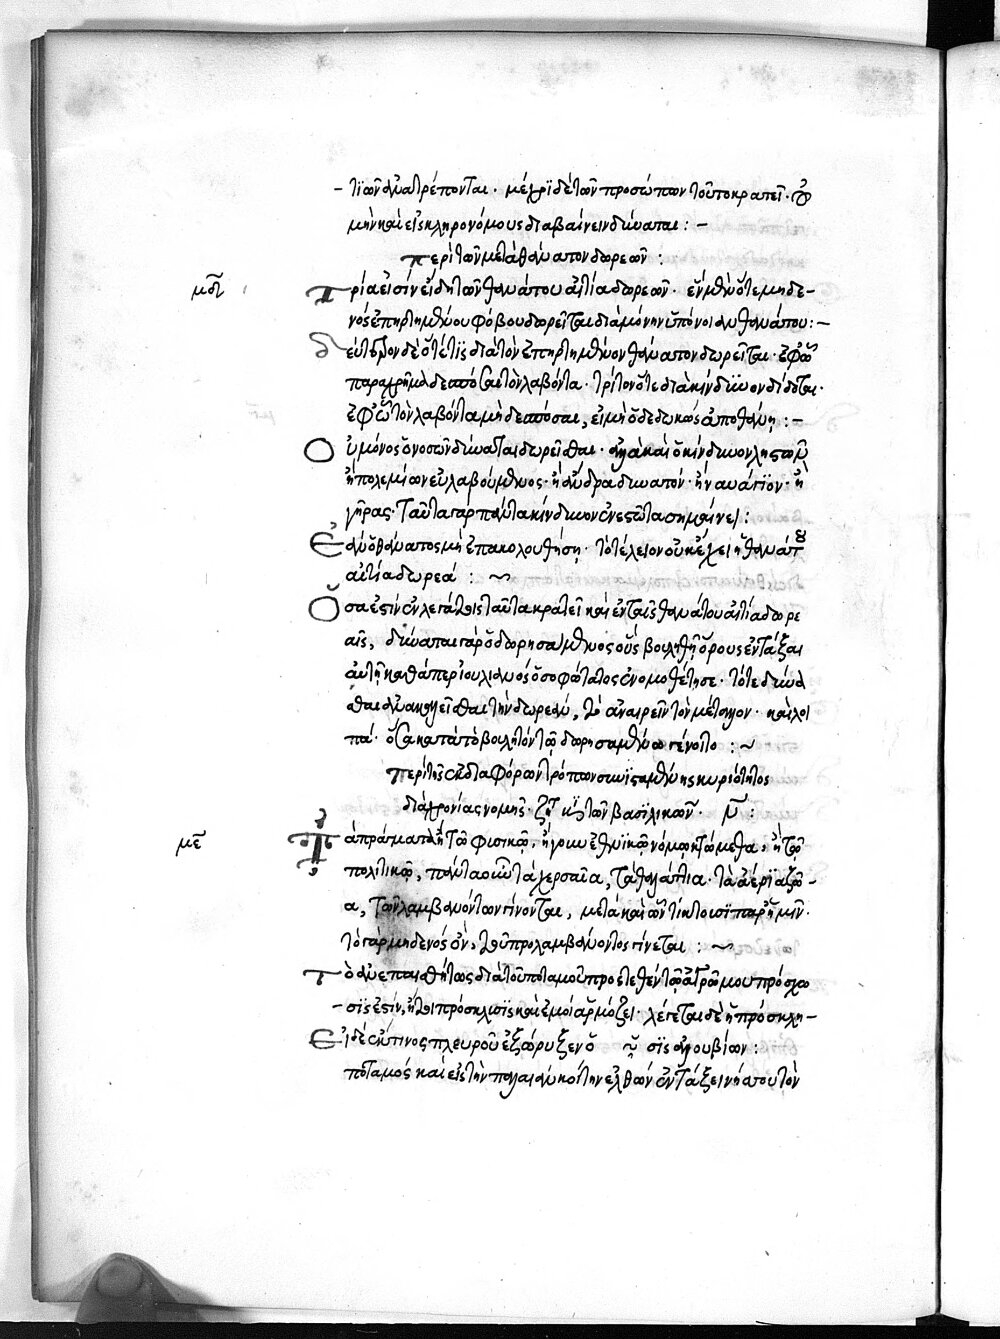 τϊων ἀνατρέπονται. μέχρϊ δὲ τῶν προσώπων τοῦτο κρατεῖ. οὐ
μὴν καὶ εἰς κληρονόμους διαβαίνειν δύναται: –
περὶ τῶν μετὰ θάνατον δωρεῶν:
μδον
Τρία εἰσὶν εἴδη τῶν θανάτου αἰτία δωρεῶν. ἓν μὲν ὅτε μηδε-
νὸς ἐπηρτημένου φόβου δωρεῖται διὰ μόνην ὑπόνοιαν θανάτου: –
δεύτερον δὲ ὅτέ τϊς διὰ τὸν ἐπηρτημένον θάνατον δωρεῖται. ἐφῶ
παραχρῆμα δεσπόσαι τὸν λαβόντα. τρίτον ὅτε διὰ κίνδϋνον δίδοται.
ἐφ' ὧ τὸν λαβόντα μὴ δεσπόσαι, εἰμὴ ὁ δεδωκὼς ἀποθάνη: –
Οὐ μόνος ὁ νοσῶν δύναται δωρεῖσθαι. ἀλλὰ καὶ ὁ κίνδυνον ληστῶν
ἢ πολεμίων εὐλαβούμενος. ἢ ἄνδρα δυνατόν. ἢ ναυάγϊον. ἢ
γῆρας. Ταῦτα γὰρ πάντα κίνδυνον ἐνεστῶτα σημαίνει:
Ἐὰν ὁ θάνατος μὴ ἐπακολουθήση. τὸ τέλειον οὐκ ἔχει ἡ θανάτου
αἰτία δωρεά: ~
Ὅσα ἐστὶν ἐν λεγάτοις ταῦτα κρατεῖ καὶ ἐν ταῖς θανάτου αἰτία δωρε
αῖς, δύναται γὰρ ὁ δωρησάμενος οὓς βουληθῆ ὅρους ἐντάξαι
αὐτῆ καθάπερ ἰουλιανὸς ὁ σοφώτατος ἐνομοθέτησε. τότε δύνα
σθαι ἀνακαλεῖσθαι τὴν δωρεάν, καὶ ἀναιρεῖν τὸν μέτοχον. καὶ λοι
πά. ὅσα κατὰ τὸ βουλητὸν τῶ δωρησαμένω γένοιτο: ~
περὶ τῆς ἐκ διαφόρων τρόπων συνϊσταμένης κυριότητος
διαχρονίας νομῆς.
με
πράγματα ἢ τῶ φυσικῶ, ἤγουν ἐθνϊκῶ νόμω κτώμεθα, ἢ τῶ
πολιτικῶ, πάντα οὖν τὰ χερσαῖα, τὰ θαλάττια. τὰ ἀέρϊα ζῶ-
α, τῶν λαμβανόντων γίνονται, μετὰ καὶ ὧν τίκτουσϊ παρ' ἡμῖν.
τὸ γὰρ μηδενὸς ὂν, τοῦ προλαμβάνοντος γίνεται: ~
Τὸ ἀνεπαισθήτως διὰ τοῦ ποταμοῦ προστεθὲν τῶ ἀγρῶ μου πρόσχω
σϊς ἐστίν, ἤτοι πρόσκλισϊς καὶ ἐμοὶ ἁρμόζει. λέγεται δὲ ἡ πρόσκλη-
σϊς ἀλουβίων:
Εἰδὲ ἐκ τινος πλευροῦ ἐξώρυξεν ὁ
ποταμὸς καὶ εἰς τὴν παλαιὰν κοίτην ἐλθὼν ἐν τάξει νήσου τὸν